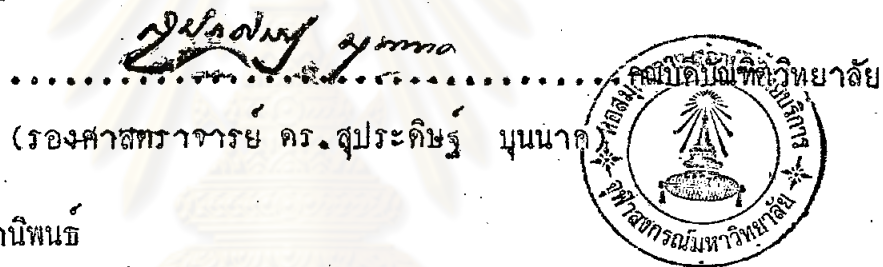 คณบดีบัณฑิตวิทยาลัย
(รองศาสตราจารย์ ดร.สุประดิษฐ์ บุนนาค)
จุฬาลงกรณ์มหาวิทยาลัย
านิพนธ์